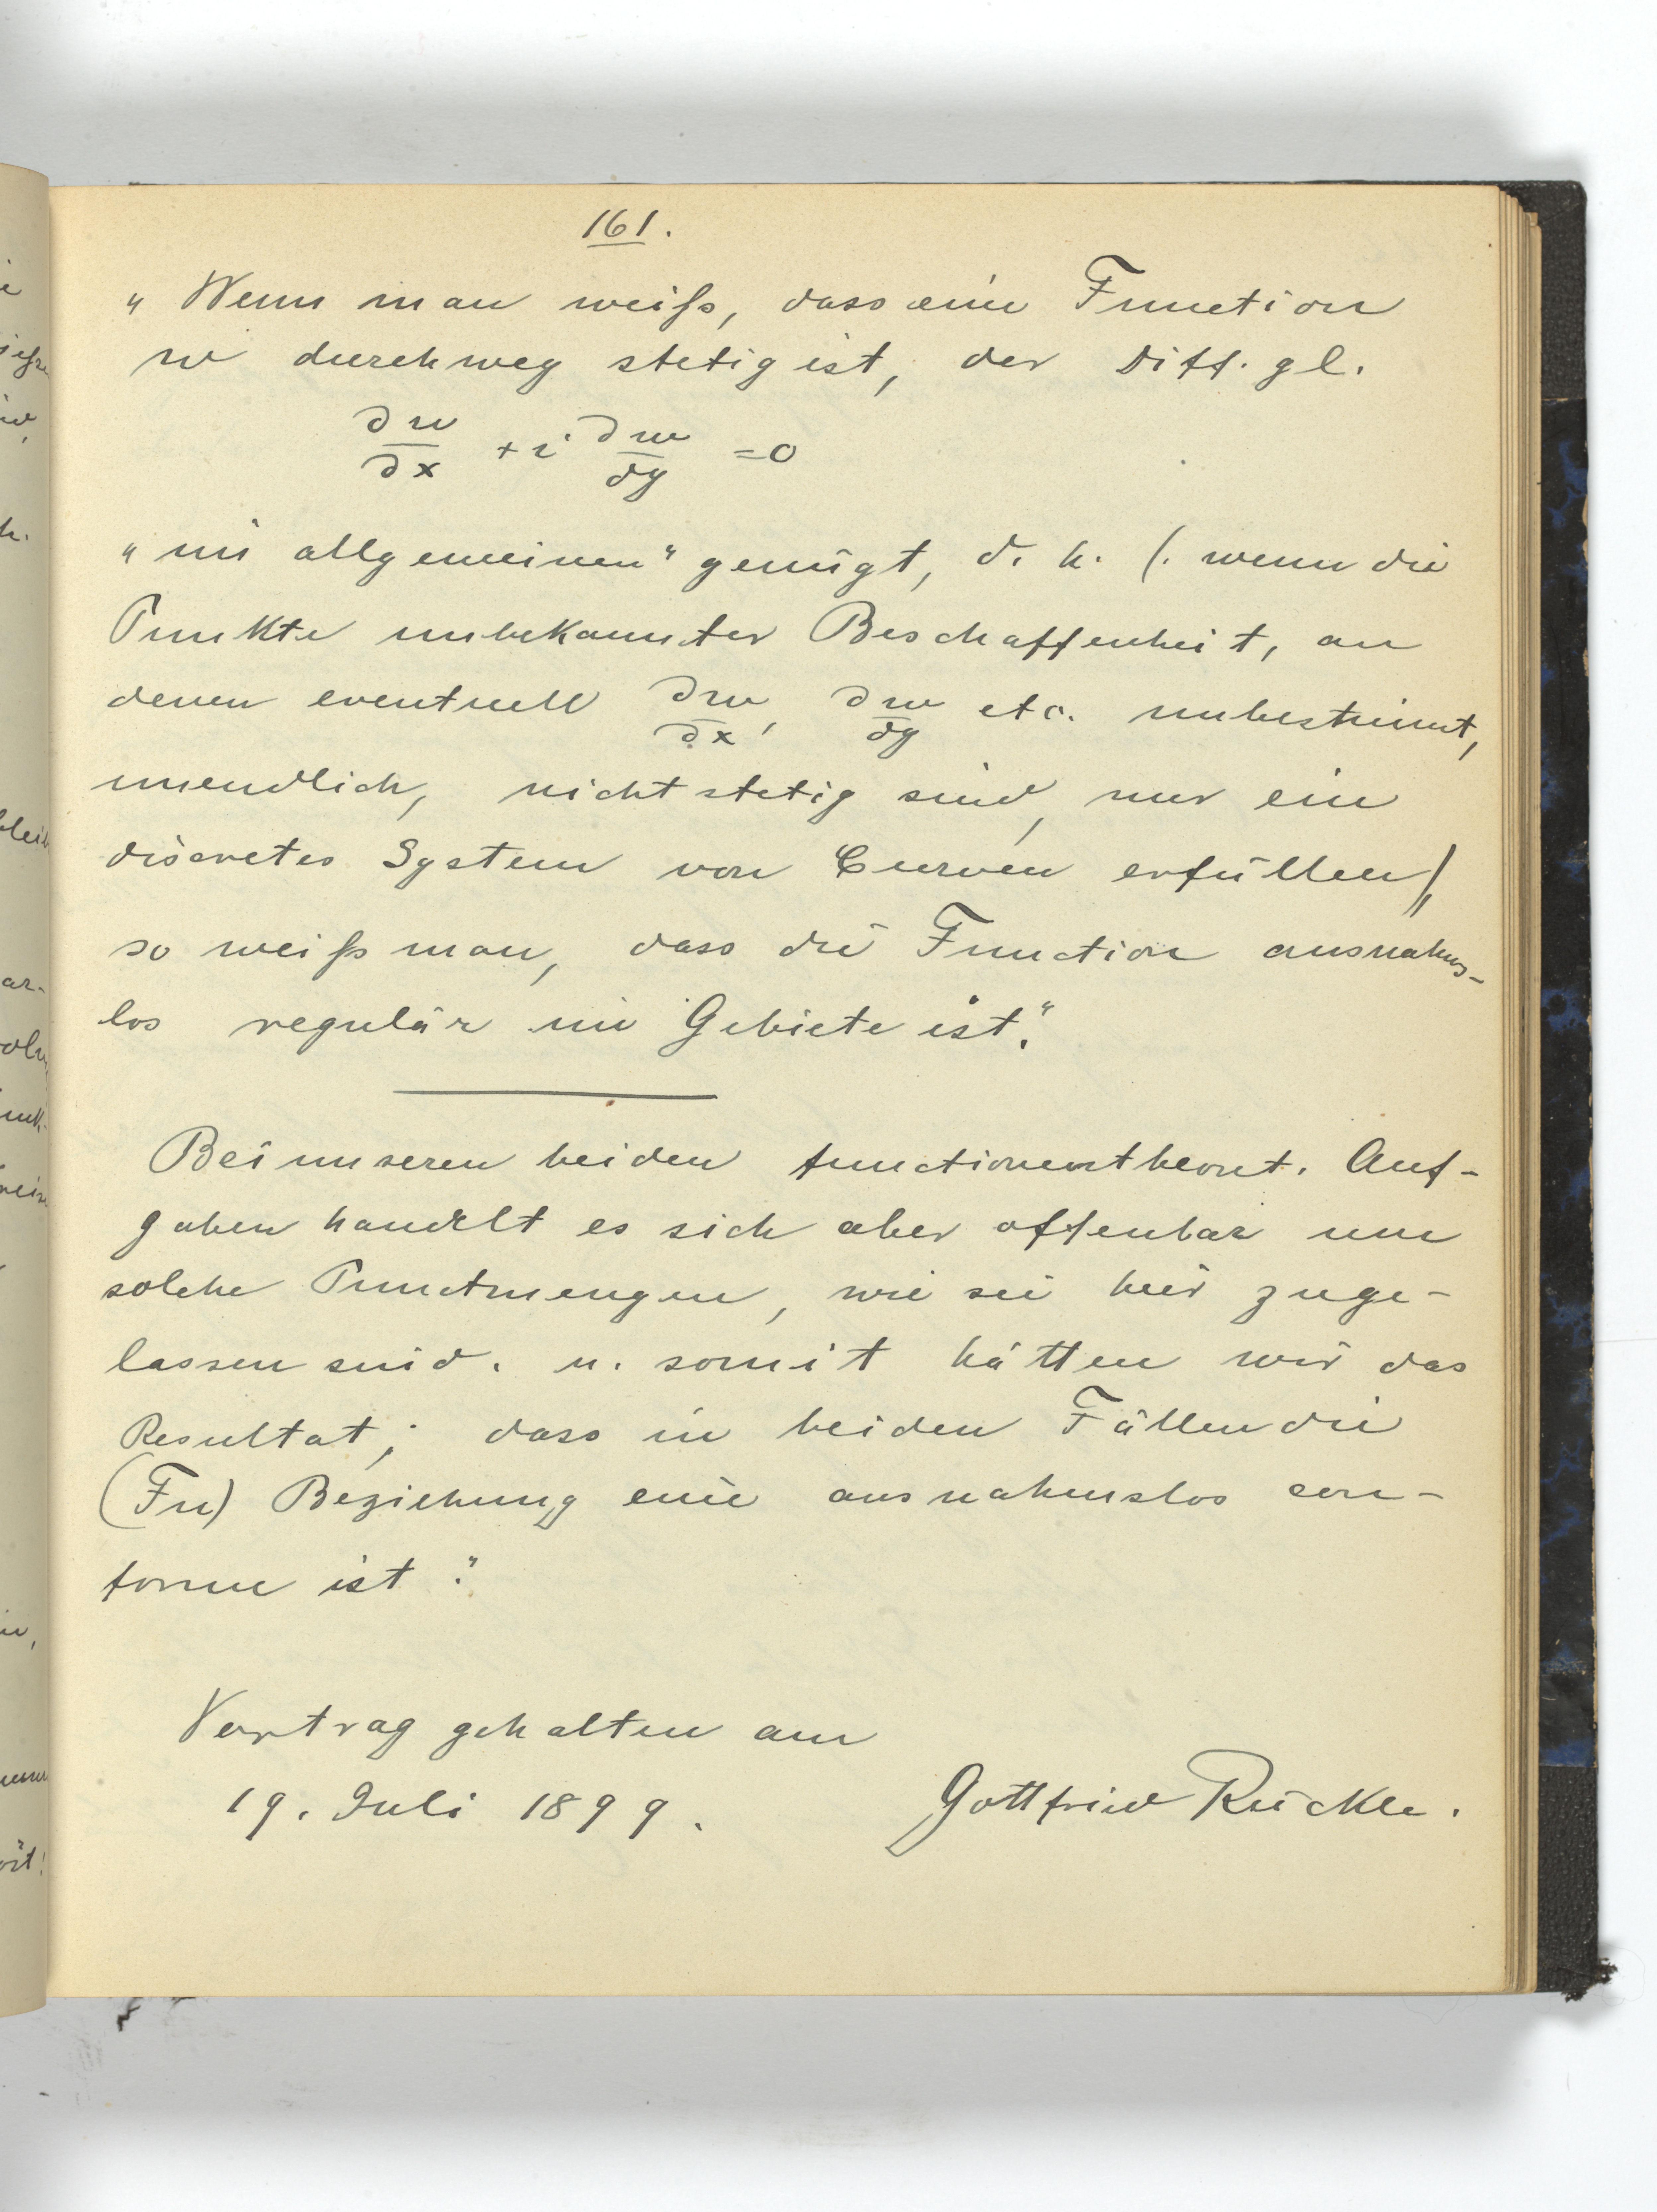 161.
„ Wenn man weiß, dass eine Function
w durchweg stetig ist, der Diff. gl.
∂w/∂x + i ∂w/∂y = 0
„im allgemeinen“ genügt, d. h. (. wenn die
Punkte unbekannter Beschaffenheit, an
denen eventuell ∂w/∂x, ∂w/∂y etc. unbestimmt,
unendlich, nicht stetig sind, nur ein
discretes System von Curven erfüllen),
so weiß man, dass die Function ausnahms-
los regulär im Gebiete ist.“
Bei unseren beiden functionentheoret. Auf-
gaben handelt es sich aber offenbar um
solche Punctmengen, wie sie hier zuge-
lassen sind. u. somit hätten wir das
Resultat; dass in beiden Fällen die
(Fn) Beziehung eine ausnahmslos con-
forme ist.“
Vortrag gehalten am
19. Juli 1899.
Gottfried Rückle.